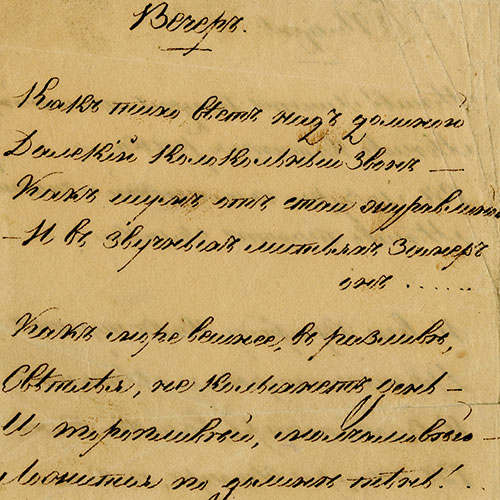 Вечеръ.
Какъ тихо вѣетъ надъ долиной
Далекій колокольный звонъ —
Какъ шумъ отъ стаи журавлиной
— И въ звучныхъ листьяхъ замеръ
онъ ......
Какъ море вешнее, въ разливѣ,
Свѣтлѣя, не колыхнетъ день —
И торопливѣй, молчаливѣй —
Ложится по долинѣ тѣнь! ..